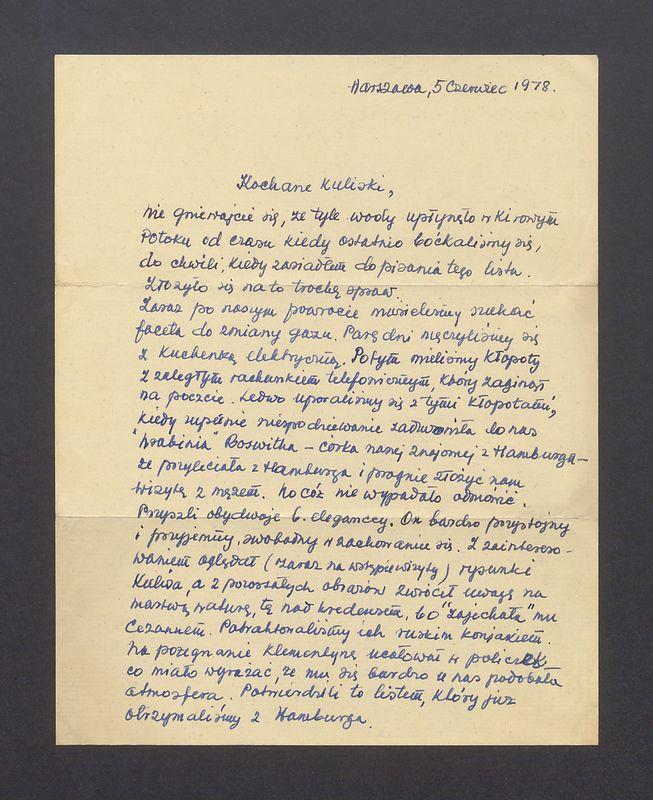 Warszawa, 5 Czerwiec 1978.
Kochane Kuliski,
nie gniewajcie się, że tyle wody upłynęło w Kirowym
Potoku od czasu kiedy ostatnio boćkaliśmy się,
do chwili, kiedy zasiadłem do pisania tego listu.
Złożyło się na to trochę spraw.
Zaraz po naszym powrocie musieliśmy szukać
faceta do zmiany gazu. Parę dni męczyliśmy się
z kuchenką elektryczną. Potym mieliśmy kłopoty
z zaległym rachunkiem telefonicznym, który zaginął
na poczcie. Ledwo uporaliśmy się z tymi kłopotami,
kiedy zupełnie niespodziewanie zadzwoniła do nas
"hrabinia" Roswitha – córka naszej znajomej z Hamburga –
że przyleciała z Hamburga i pragnie złożyć nam
wizytę z mężem. No cóż nie wypadało odmówić.
Przyszli obydwoje b. eleganccy. On bardzo przystojny
i przyjemny, swobodny w zachowaniu się. Z zaintereso-
waniem oglądał (zaraz na wstępie wizyty) rysunki
Kulisa, a z pozostałych obrazów zwrócił uwagę na
martwą naturę, tę nad kredensem, bo "zajechała" mu
Cezannem. Potraktowaliśmy ich ruskim koniakiem.
Na pożegnanie Klementynę ucałował w policzek
co miało wyrażać, że mu się bardzo u nas podobała
atmosfera. Potwierdzili to listem, który już
otrzymaliśmy z Hamburga.